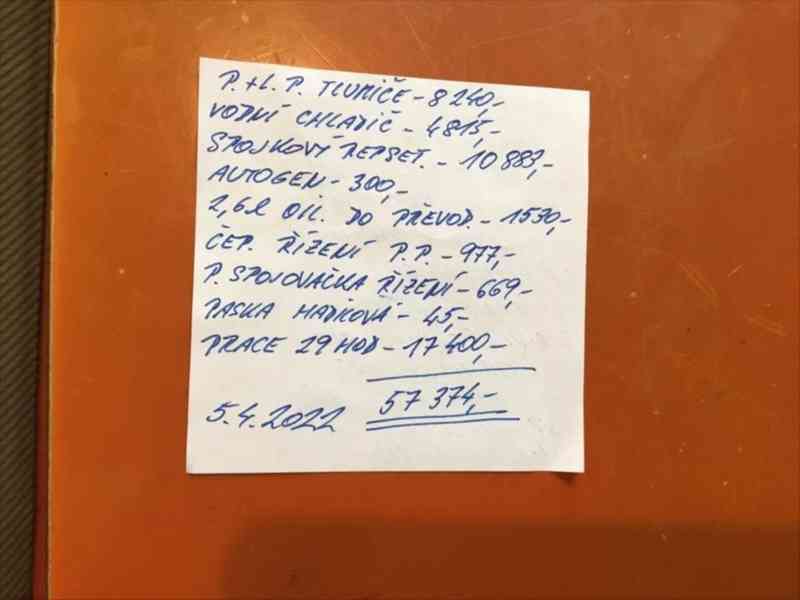 P.+L. P. TLUMIČE - 8 240,-
VODNÍ CHLADIČ - 4815,-
SPOJKOVÝ REPSET. - 10 883,-
AUTOGEN - 300,-
2,6l OIL. DO PŘEVOD. - 1530,-
ČEP. ŘÍZENÍ P.P. - 977,-
P. SPOJOVAČKA ŘÍZENÍ - 669,-
PASKA HADICOVÁ - 45,-
PRACE 29 HOD - 17 400,-
57 374,-
5.4.2022